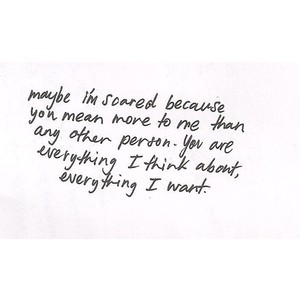 maybe i'm scared because
you mean more to me than
any other person. You are
everything I think about,
everything I want.